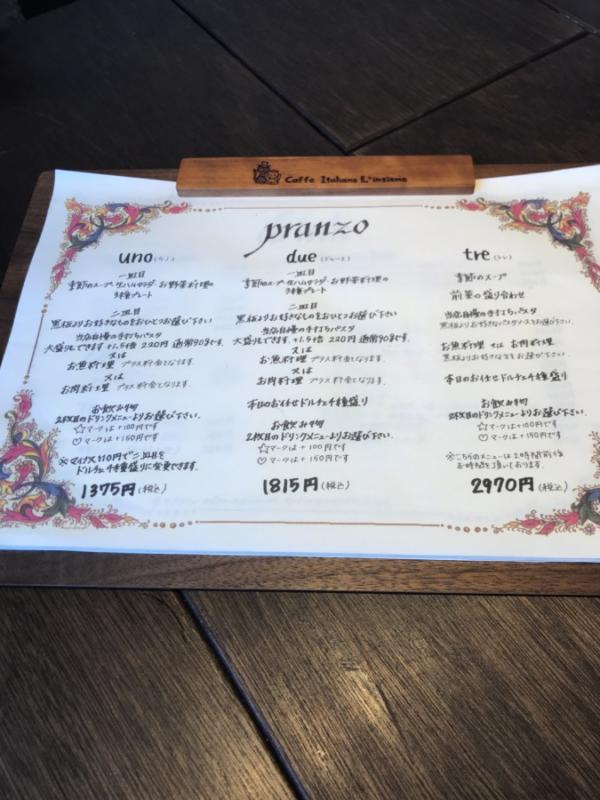 Caffe Italiano L'insieme
pranzo
uno (ウノ)
一皿目
季節のスープ・生ハムサラダ・お野菜料理の
3種プレート
二皿目
黒板よりお好きなものをおひとつお選び下さい
当店自慢の手打ちパスタ
大盛りもできます +1.5倍 220円 通常90gです。
又は
お魚料理 プラス料金となります。
又は
お肉料理 プラス料金となります。
お飲み物
2枚目のドリンクメニューよりお選び下さい。
☆マークは+100円です
♡マークは+150円です
※マイナス110円で二皿目を
ドルチェ4種盛りに変更できます。
1375円(税込)
due (ドゥーエ)
一皿目
季節のスープ・生ハムサラダ・お野菜料理の
3種プレート
二皿目
黒板よりお好きなものをおひとつお選び下さい
当店自慢の手打ちパスタ
大盛りもできます。+1.5倍 220円 通常90gです。
又は
お魚料理 プラス料金となります。
又は
お肉料理 プラス料金となります。
本日のお任せドルチェ4種盛り
お飲み物
2枚目のドリンクメニューよりお選び下さい。
☆マークは+100円です
♡マークは+150円です
1815円(税込)
tre (トレ)
季節のスープ
前菜の盛り合わせ
当店自慢の手打ちパスタ
黒板よりお好きなパスタソースをお選び下さい。
お魚料理 又は お肉料理
黒板よりお好きな方をお選び下さい。
本日のお任せドルチェ4種盛り
お飲み物
2枚目のドリンクメニューよりお選び下さい。
☆マークは+100円です
♡マークは+150円です
※こちらのメニューは2時間前後
お時間を頂いております。
2970円(税込)